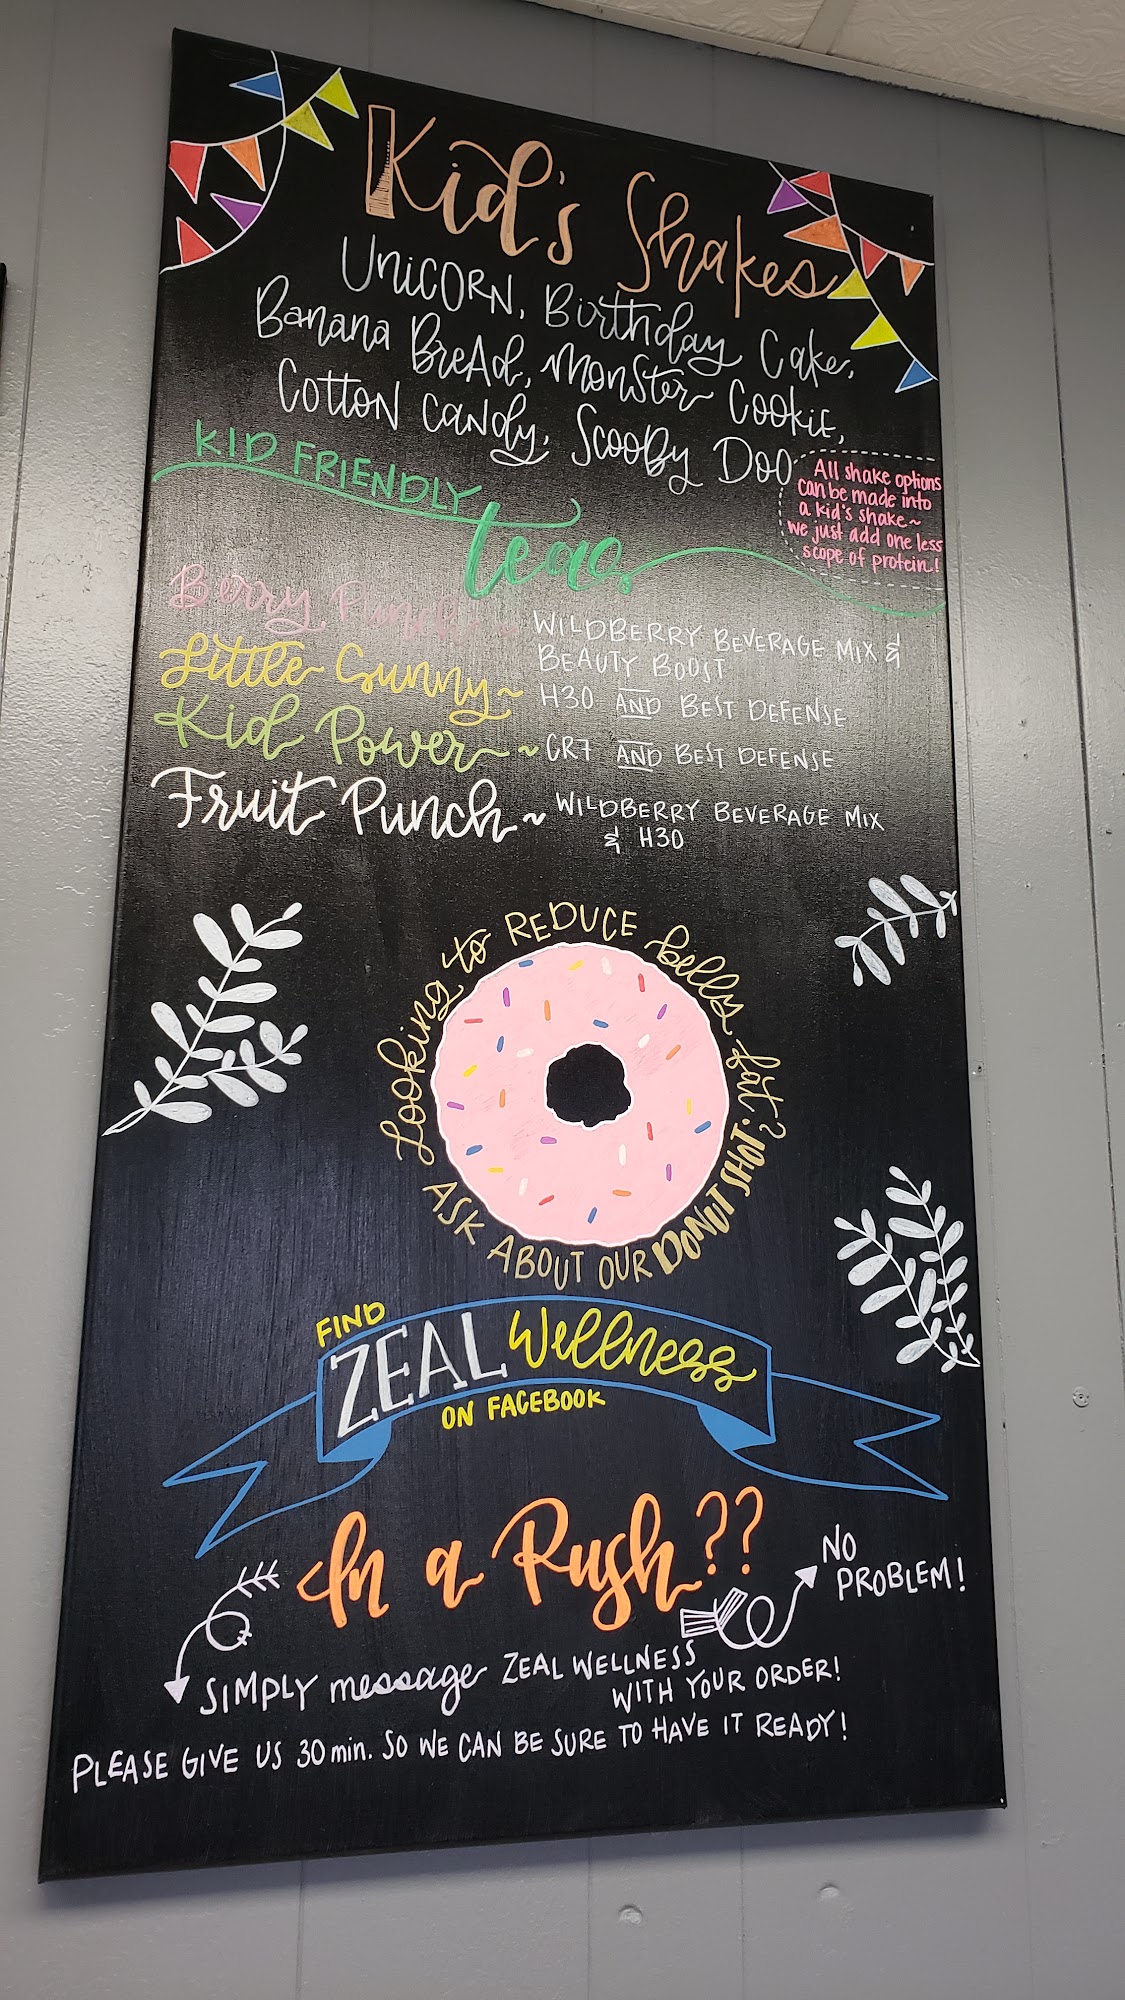 Kid's Shakes
Unicorn, Birthday Cake,
Banana Bread, Monster Cookie,
Cotton Candy, Scooby Doo
All shake options
can be made into
a kid's shake~
we just add one less
scope of protein!
KID FRIENDLY
teas
Berry Punch ~ WILDBERRY BEVERAGE MIX &
BEAUTY BOOST
Little Sunny ~ H30 AND BEST DEFENSE
Kid Power ~ CR7 AND BEST DEFENSE
Fruit Punch ~ WILDBERRY BEVERAGE MIX
& H30
Looking to REDUCE belly fat?
ASK ABOUT OUR DONUT SHOT!
FIND
ZEAL Wellness
ON FACEBOOK
In a Rush??
NO
PROBLEM!
SIMPLY message ZEAL WELLNESS
WITH YOUR ORDER!
PLEASE GIVE US 30 min. SO WE CAN BE SURE TO HAVE IT READY!